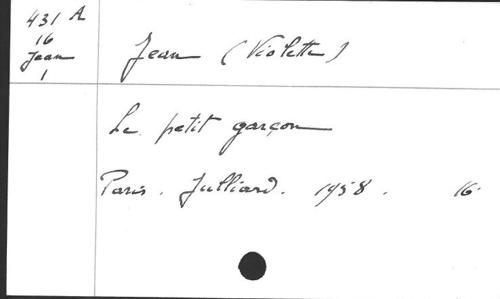 431 A
16
Jean
1
Jean (Violette)
Le petit garçon
Paris. Julliard. 1958. 16.